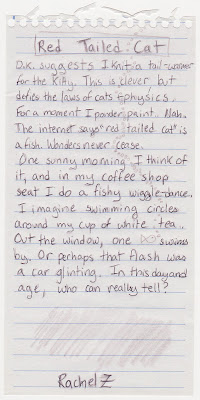 Red Tailed Cat
D.K. suggests I knit a tail-warmer
for the kitty. This is clever, but
defies the laws of cats + physics.
For a moment I ponder paint. Nah.
The internet says "red tailed cat" is
a fish. Wonders never cease.
One sunny morning I think of
it, and in my coffee shop
seat I do a fishy wiggle-dance.
I imagine swimming circles
around my cup of white tea.
Out the window, one swims
by. Or perhaps that flash was
a car glinting. In this day and
age, who can really tell?
Rachel Z